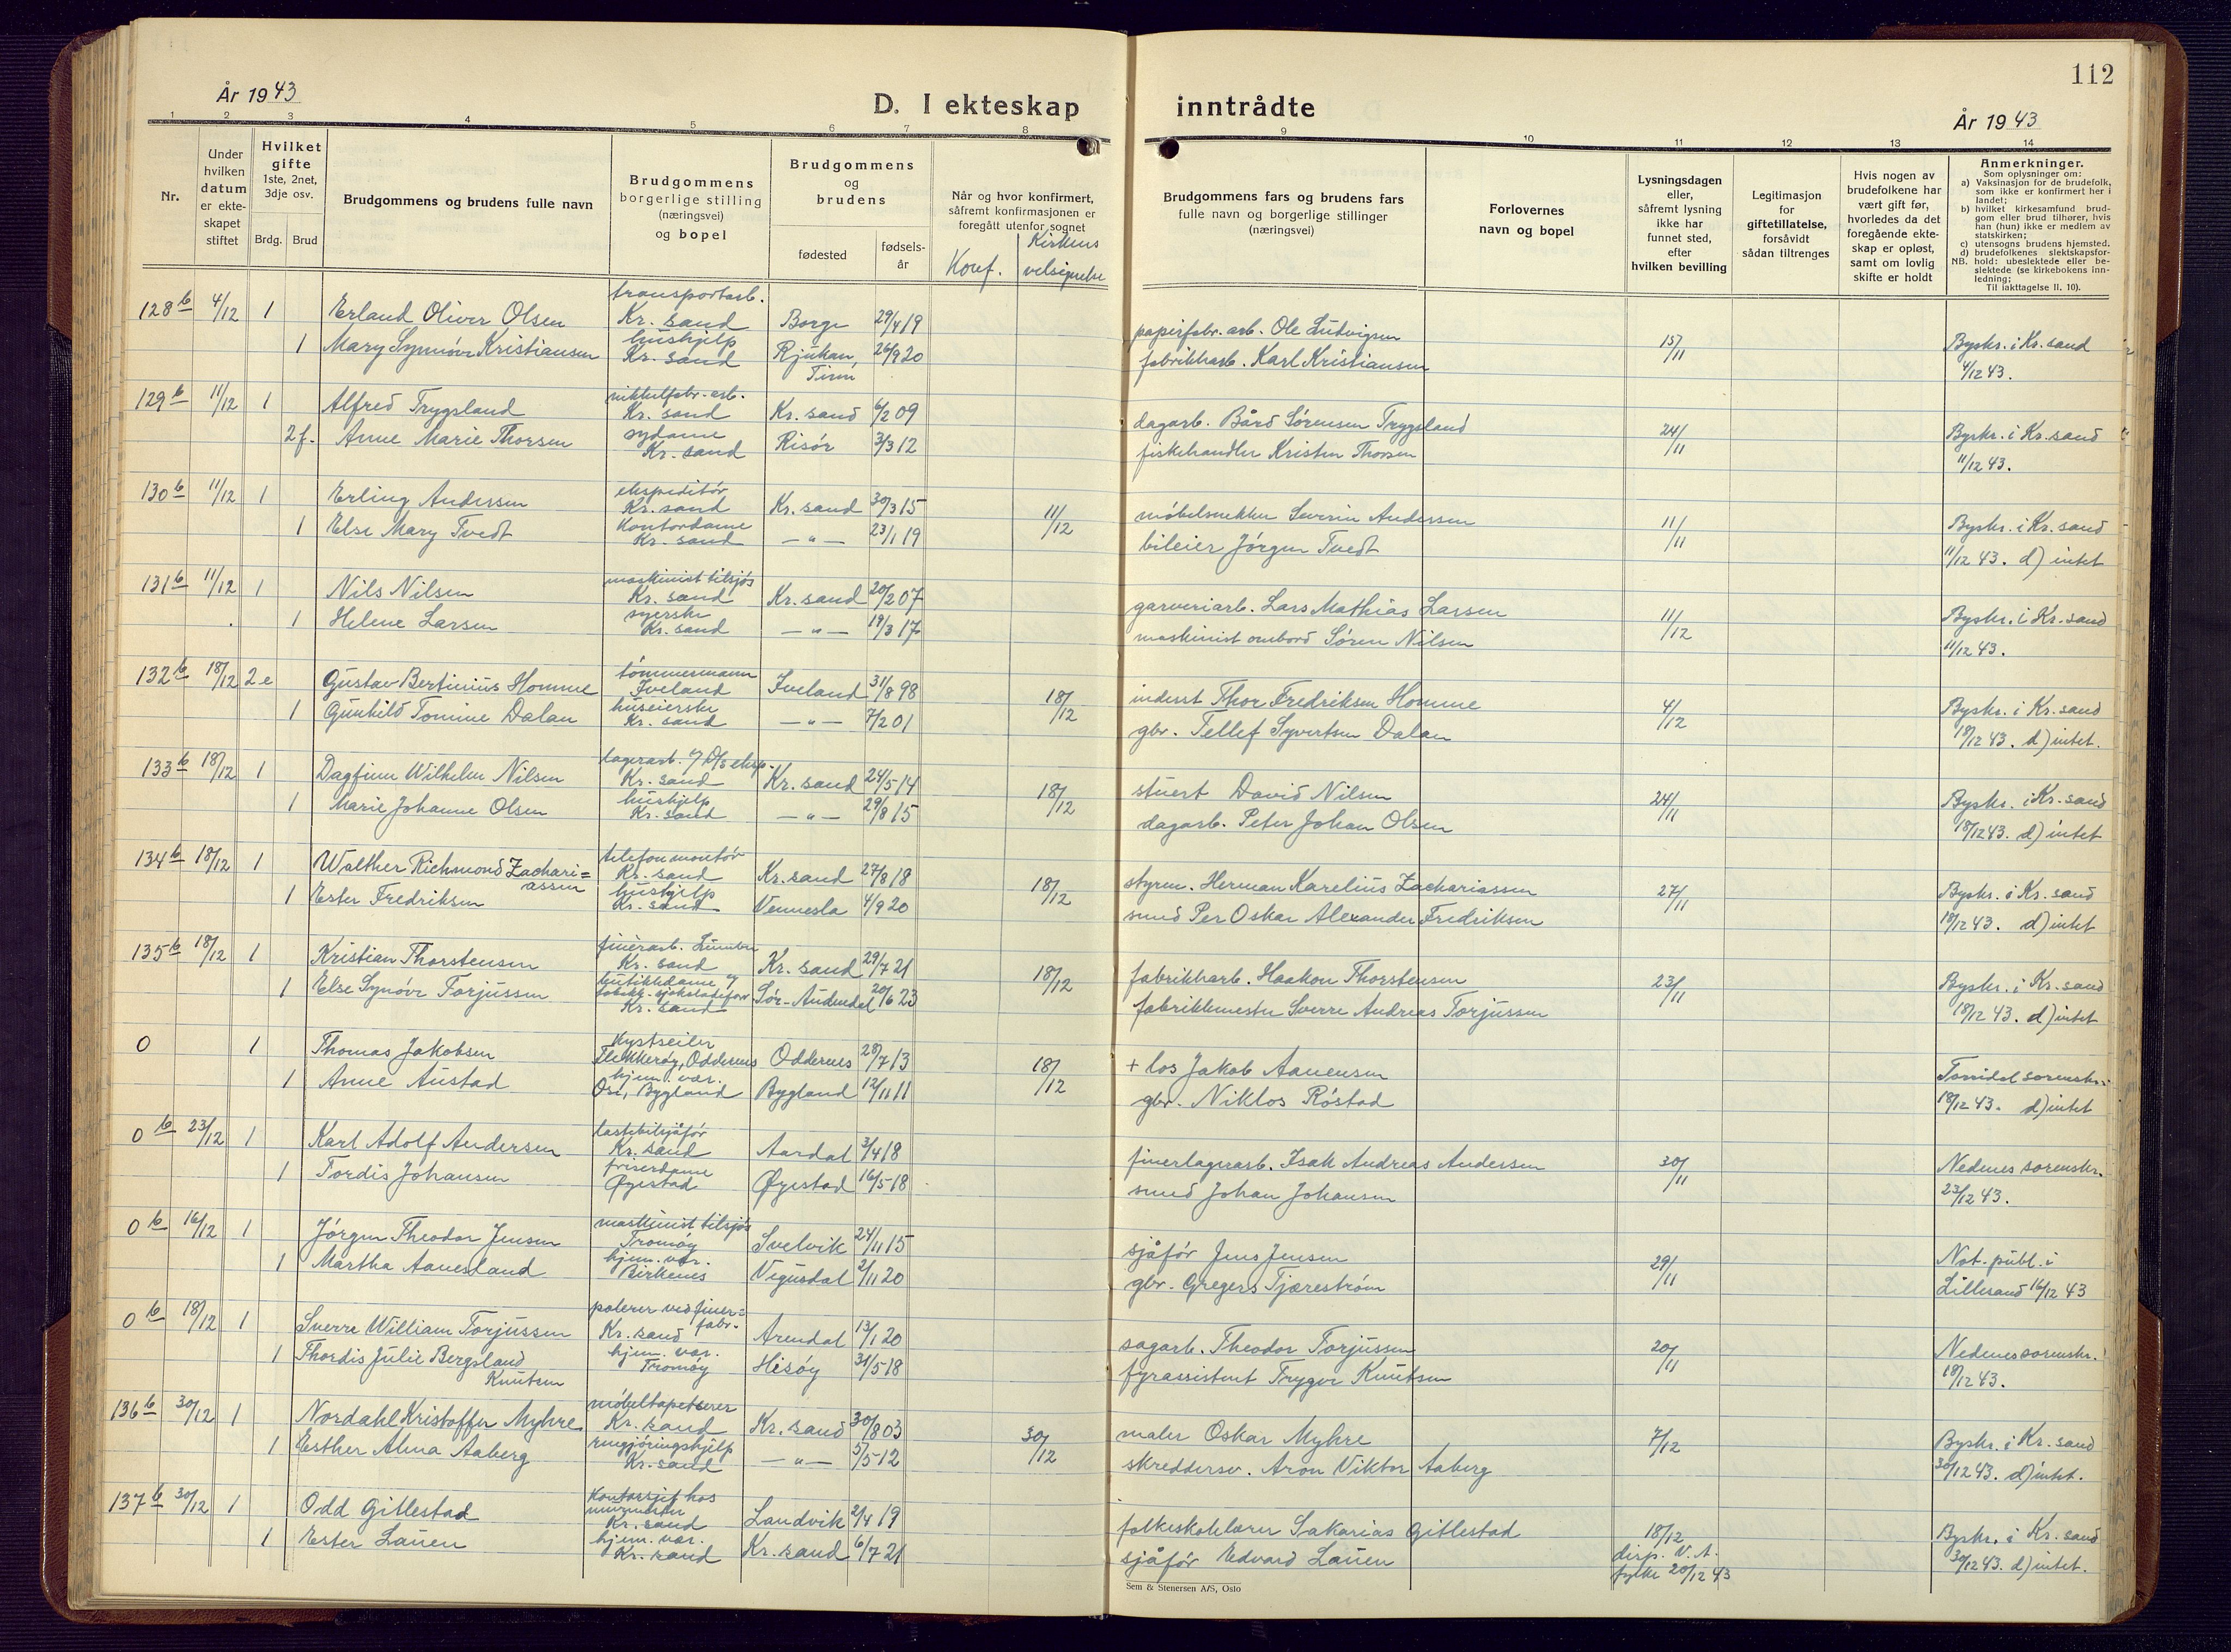 112
År 1943
D. I ekteskap inntrådte
År 1943
1 2 3 4 5 6 7 8 9 10 11 12 13 14
Nr.
Under hvilken datum er ekte-skapet stiftet
Hvilket gifte 1ste, 2net, 3dje osv.
Brdg. Brud
Brudgommens og brudens fulle navn
Brudgommens borgerlige stilling (næringsvei) og bopel
Brudgommens og brudens
fødested
fødsels-år
Når og hvor konfirmert, såfremt konfirmasjonen er foregått utenfor sognet
Konf. Kirkens velsignelse
Brudgommens fars og brudens fars fulle navn og borgerlige stillinger (næringsvei)
Forlovernes navn og bopel
Lysningsdagen eller, såfremt lysning ikke har funnet sted, efter hvilken bevilling
Legitimasjon for giftetillatelse, forsåvidt sådan tiltrenges
Hvis nogen av brudefolkene har vært gift før, hvorledes da det foregående ekte-skap er opløst, samt om lovlig skifte er holdt
Anmerkninger.
Som oplysninger om:
a) Vaksinasjon for de brudefolk, som ikke er konfirmert her i landet;
b) hvilket kirkesamfund brud-gom eller brud tilhører, hvis han (hun) ikke er medlem av statskirken;
c) utensogns brudens hjemsted.
d) brudefolkenes slektskapsfor-hold: ubeslektede eller be-slektede (se kirkebokens inn-ledning;
NB.
Til iakttagelse II. 10).
128 b 4/12 1 Erland Oliver Olsen transportarb. Kr. sand Borge 29/4 19 papirfabr. arb. Ole Ludvigsen 15/11 Byskr. i Kr. sand
1 Mary Synnöve Kristiansen hushjelp Kr. sand Rjukan, Tinn 26/9 20 fabrikkarb. Karl Kristiansen 4/12 43.
129 b 11/12 1 Alfred Trygsland nikkelfabr.-arb. Kr. sand Kr. sand 6/2 09 dagarb. Bård Sörensen Trygsland 24/11 Byskr. i Kr. sand
2 f. Anne Marie Thorsen sydame Kr. sand Risör 3/3 12 fiskehandler Kristen Thorsen 11/12 43.
130 b 11/12 1 Erling Andersen ekspeditör Kr. sand Kr. sand 30/3 15 11/12 möbelsnekker Severin Andersen 11/11 Byskr. i Kr. sand
1 Else Mary Tvedt Kontordame Kr. sand — " — 23/1 19 bileier Jörgen Tvedt 11/12 43. d) intet
131 b 11/12 1 Nils Nilsen maskinist tilsjös Kr. sand Kr. sand 20/2 07 garveriarb. Lars Mathias Larsen 11/12 Byskr. i Kr. sand
1 Helene Larsen syerske Kr. sand — " — 19/3 17 maskinist ombord Sören Nilsen 11/12 43.
132 b 18/12 2 e Gustav Bertinius Homme tömmermann Iveland Iveland 31/8 98 18/12 inderst Thor Fredriksen Homme 4/12 Byskr. i Kr. sand
1 Gunhild Tomine Dalan huseierske Kr. sand — " — 7/2 01 gbr. Tellef Syvertsen Dalan 18/12 43. d) intet.
133 b 18/12 1 Dagfinn Wilhelm Nilsen Kr. sand Kr. sand 24/5 14 18/12 stuert David Nilsen 24/11 Byskr. i Kr. sand
1 Marie Johanne Olsen hushjelp Kr. sand — " — 29/8 15 dagarb. Peter Johan Olsen 18/12 43. d) intet
134 b 18/12 1 Walther Richmond Zachari=assen telefonmontör Kr. sand Kr. sand 27/8 18 18/12 styrm. Herman Karelius Zachariassen 27/11 Byskr. i Kr. sand
1 Ester Fredriksen hushjelp Kr. sand Vennesla 4/9 20 smed Per Oskar Alexander Fredriksen 18/12 43. d) intet
135 b 18/12 1 Kristian Thorstensen finérarb. Kr. sand Kr. sand 29/7 21 18/12 fabrikkarb. Haakon Thorstensen 23/11 Byskr. i Kr. sand
1 Else Synöve Torjussen butikkdame Kr. sand Sör-Audnedal 20/6 23 fabrikkmester Sverre Andreas Torjussen 18/12 43. d) intet
0 1 Thomas Jakobsen Kystseiler Flekkeröy, Oddernes Oddernes 28/7 13 18/12 + los Jakob Aanensen Torridal sorenskr.
1 Anne Austad hjem. vær. Ose, Bygland Bygland 12/11 11 gbr. Niklos Röstad 18/12 43. d) intet
0 b 23/12 1 Karl Adolf Andersen lastebilsjåför Kr. sand Aardal 3/4 18 finerlagerarb. Isak Andreas Andersen 30/11 Nedenes sorenskr.
1 Tordis Johansen friserdame Øyestad Øyestad 16/5 18 smed Johan Johansen 23/12 43.
0 b 16/12 1 Jörgen Theodor Jensen maskinist tilsjös Tromöy Svelvik 24/11 15 sjåför Jens Jensen 29/11 Not. publ. i
1 Martha Aanesland hjem. vær. Birkenes Vegusdal 2/11 20 gbr. Gregers Tjæreström Lillesand 16/12 43
0 b 18/12 1 Sverre William Torjussen polerer ved finer=fabr. Kr. sand Arendal 13/1 20 sagarb. Theodor Torjussen 20/11 Nedenes sorenskr.
1 Thordis Julie Bergsland Knutsen hjem. vær. Tromöy Hisöy 31/5 18 fyrassistent Trygve Knutsen 18/12 43.
136 b 30/12 1 Nordahl Kristoffer Myhre möbeltapetserer Kr. sand Kr. sand 30/8 03 30/12 maler Oskar Myhre 7/12 Byskr. i Kr. sand
1 Esther Alma Aaberg rengjöringshjelp Kr. sand — " — 5/5 12 skreddersv. Aron Viktor Aaberg 30/12 43. d) intet.
137 b 30/12 1 Odd Gitlestad hos murmester Kr. sand Landvik 2/4 19 folkeskolelærer Sakarias Gitlestad 18/12 Byskr. i Kr. sand
1 Ester Lauen hjem. vær. Kr. sand Kr. sand 6/7 21 sjåför Edvard Lauen disp. V. A. fylke 20/12 43 30/12 43. d) intet.
Sem & Stenersen A/S, Oslo